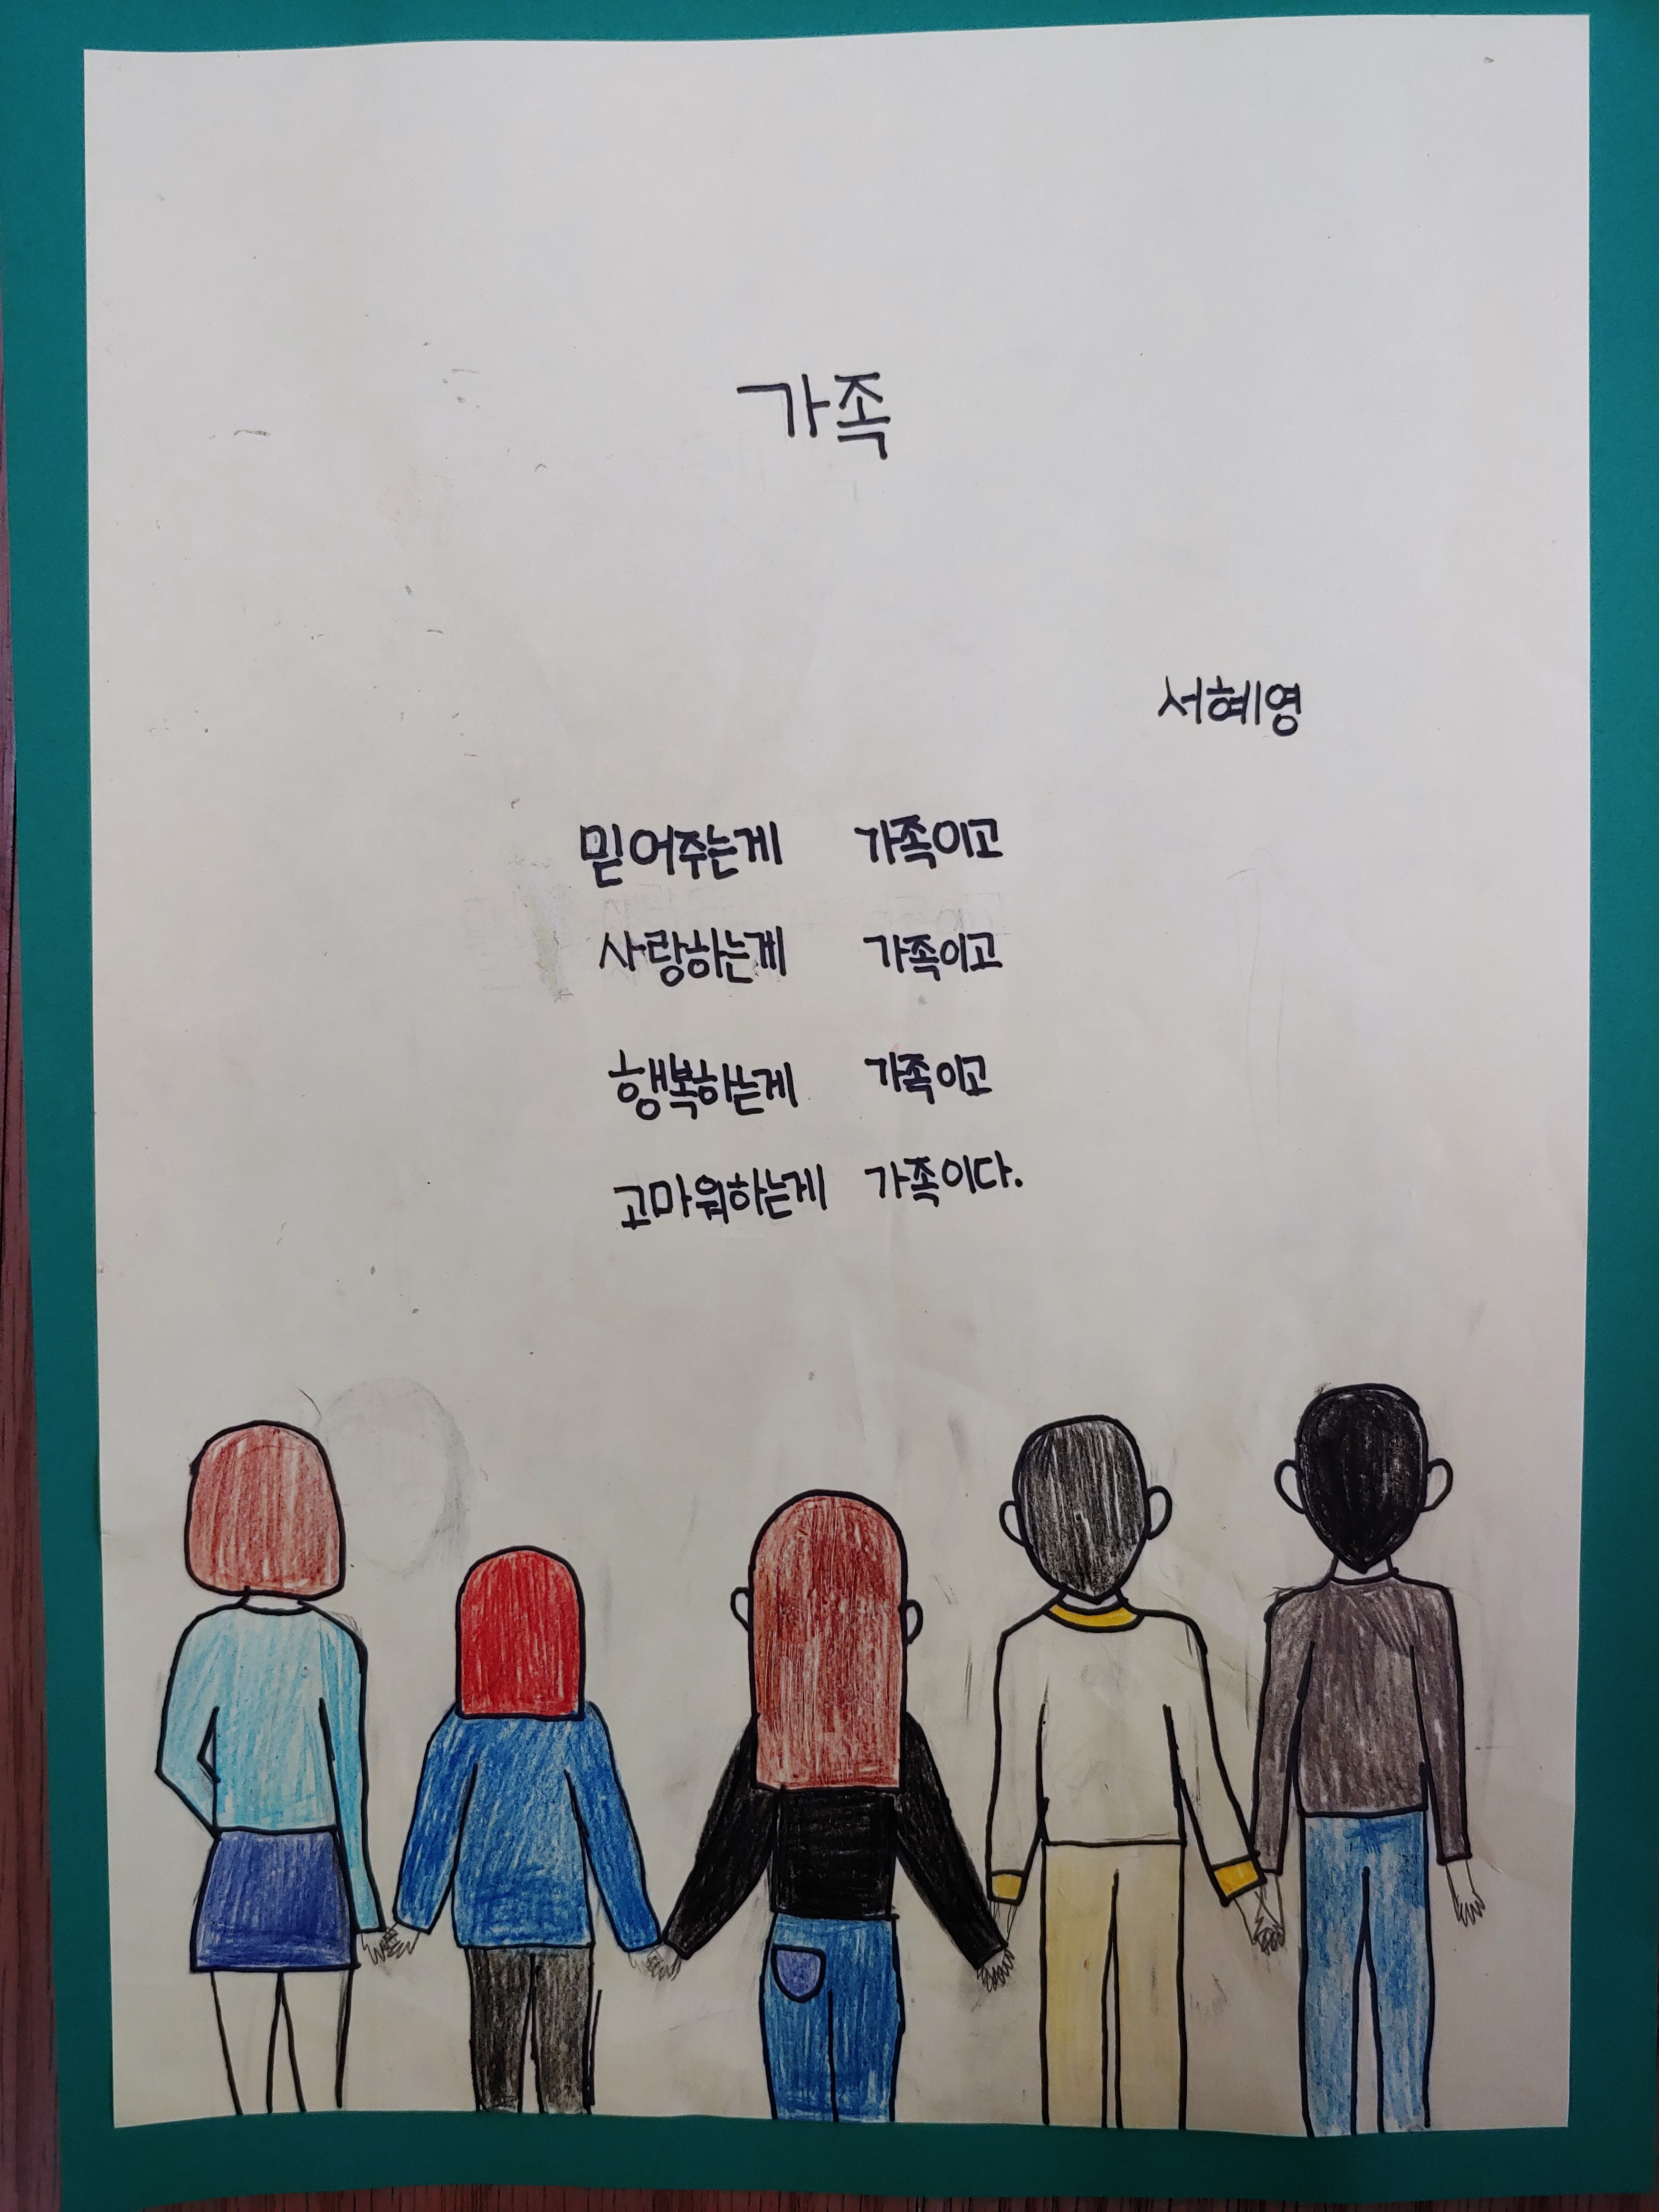 가족
서혜영
믿어주는게 가족이고
사랑하는게 가족이고
행복하는게 가족이고
고마워하는게 가족이다.